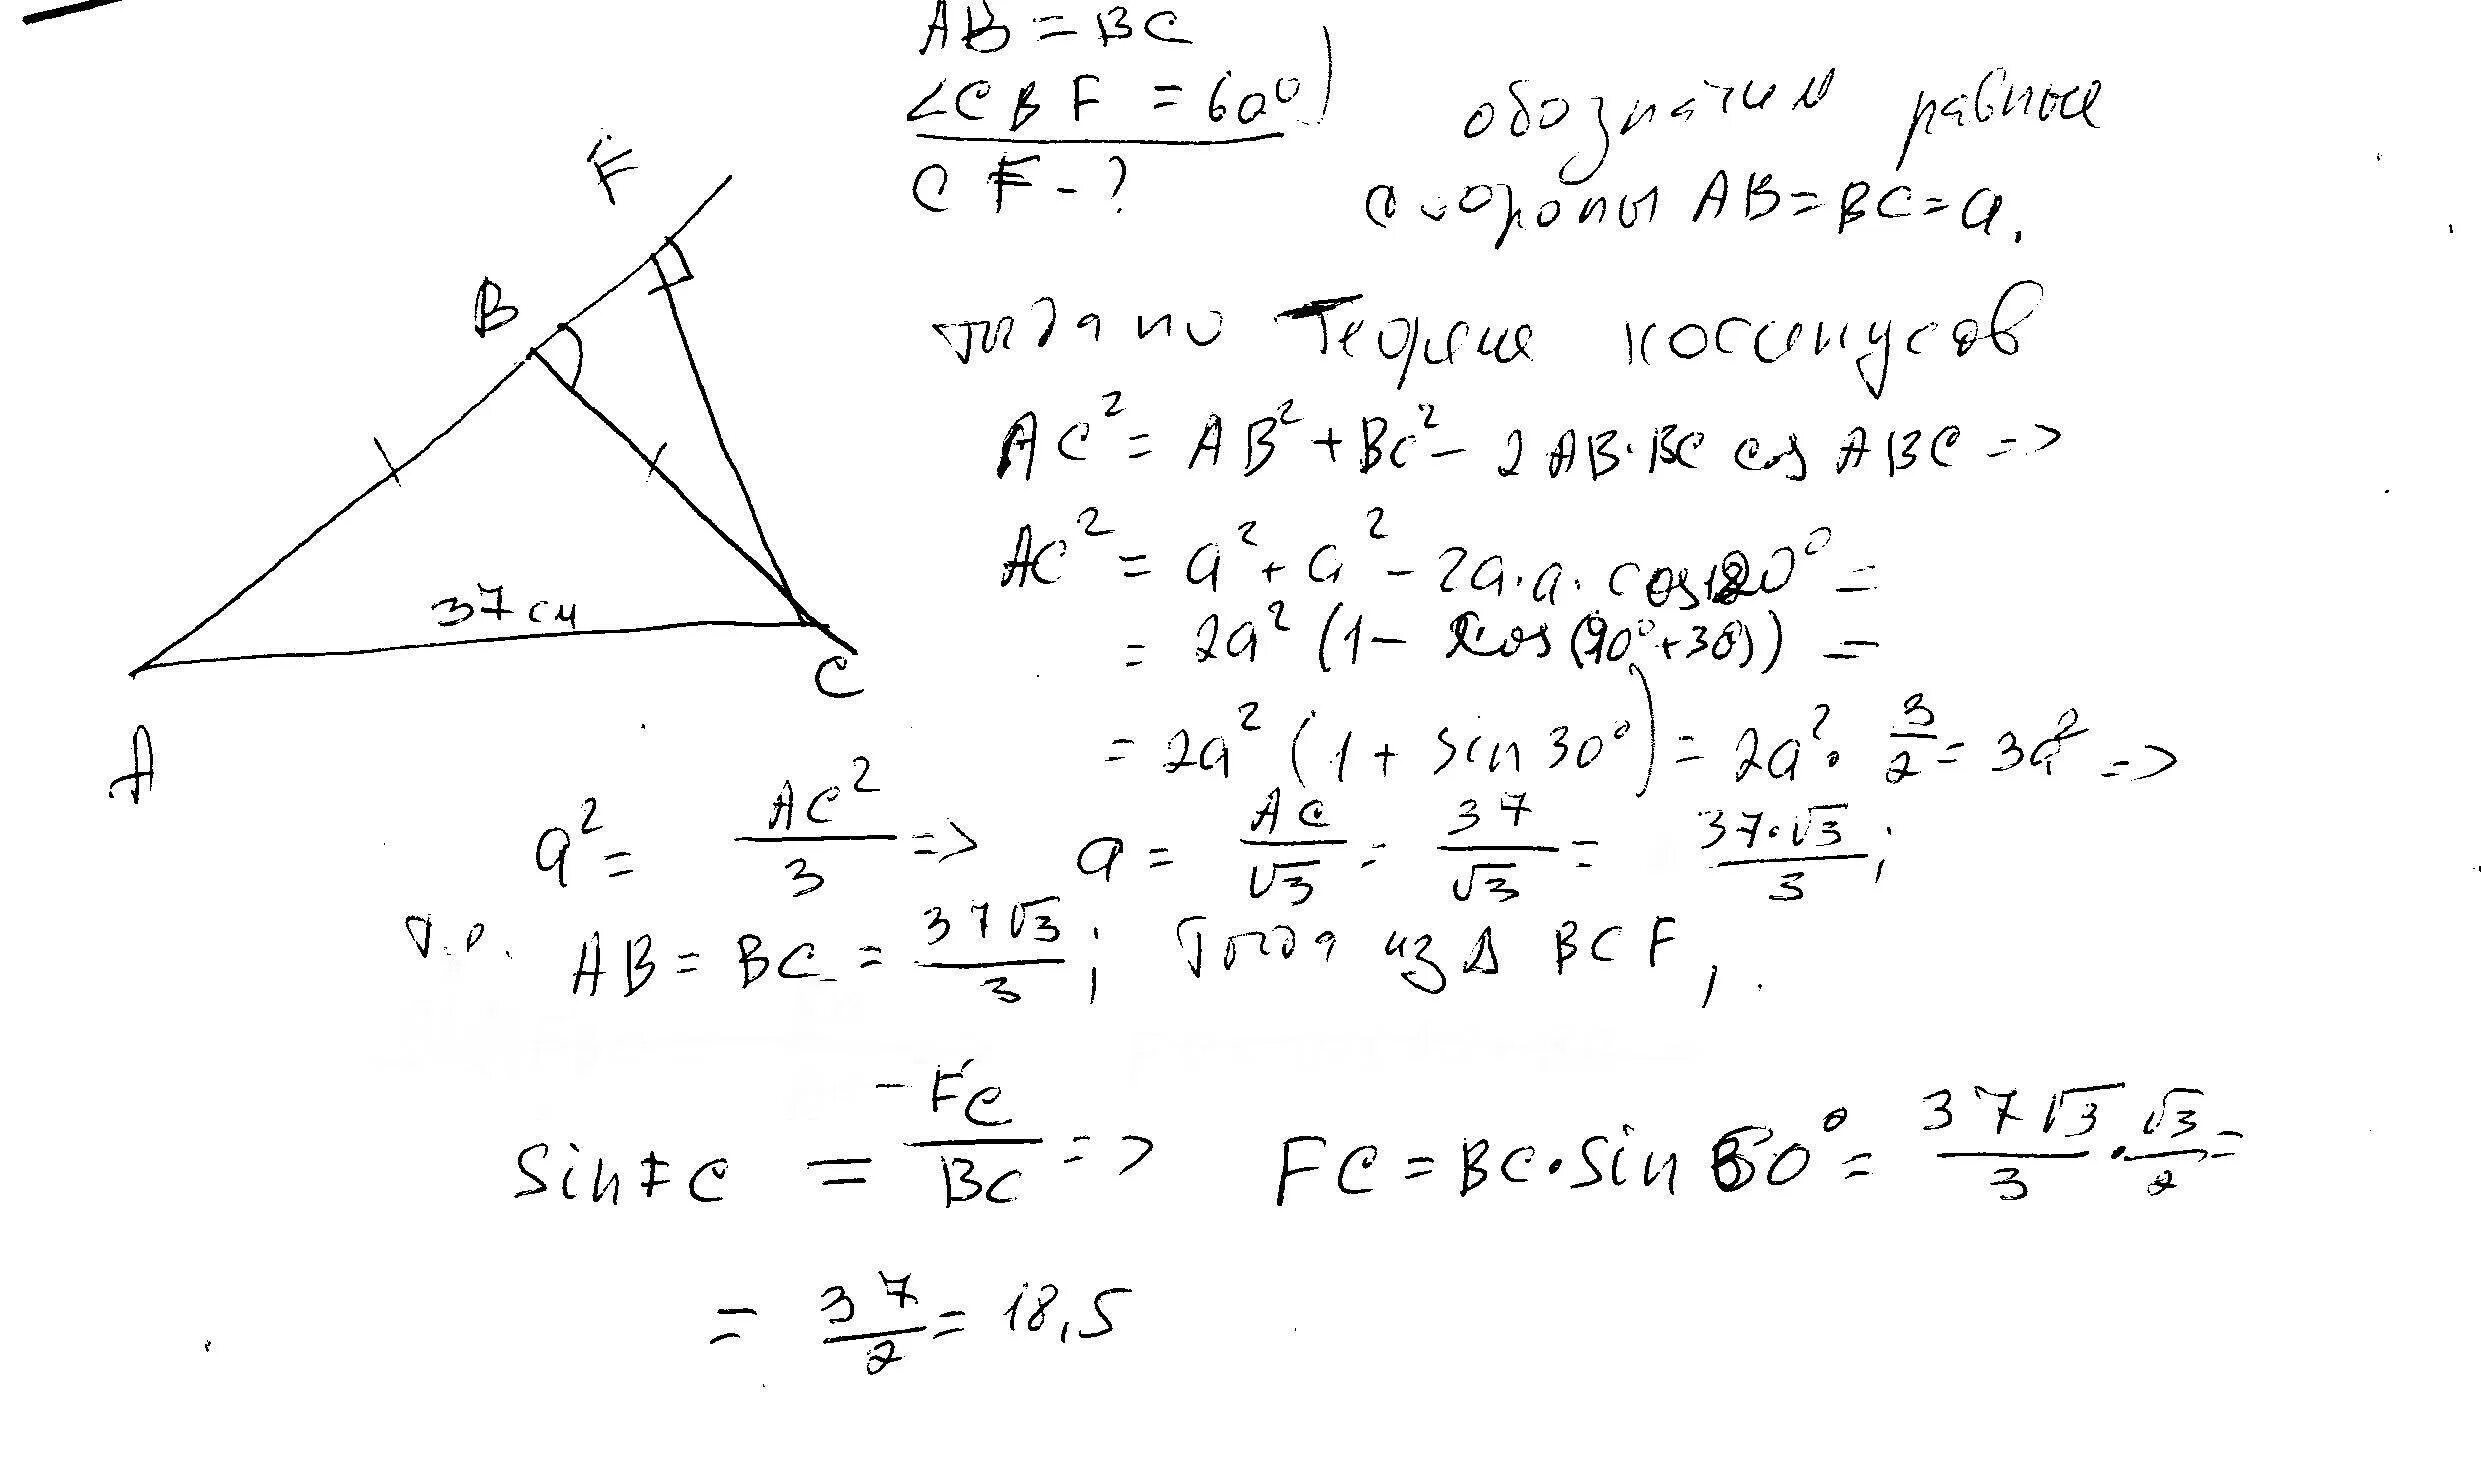 AB = BC
∠CBF = 60°
CF - ?
обозначим равные
стороны AB = BC = a.
F
B
37 см
C
A
тогда по теореме косинусов
AC² = AB² + BC² - 2AB·BC cos ABC =>
AC² = a² + a² - 2a·a·cos120° =
= 2a² (1 - cos(90°+30°)) =
= 2a² (1 + sin 30°) = 2a² · 3/2 = 3a² =>
a² = AC²/3 => a = AC/√3 = 37/√3 = 37·√3/3;
т.о. AB = BC = 37√3/3; Тогда из Δ BCF,
sin FC = FC/BC => FC = BC·sin 60° = 37√3/3 · √3/2 =
= 37/2 = 18,5